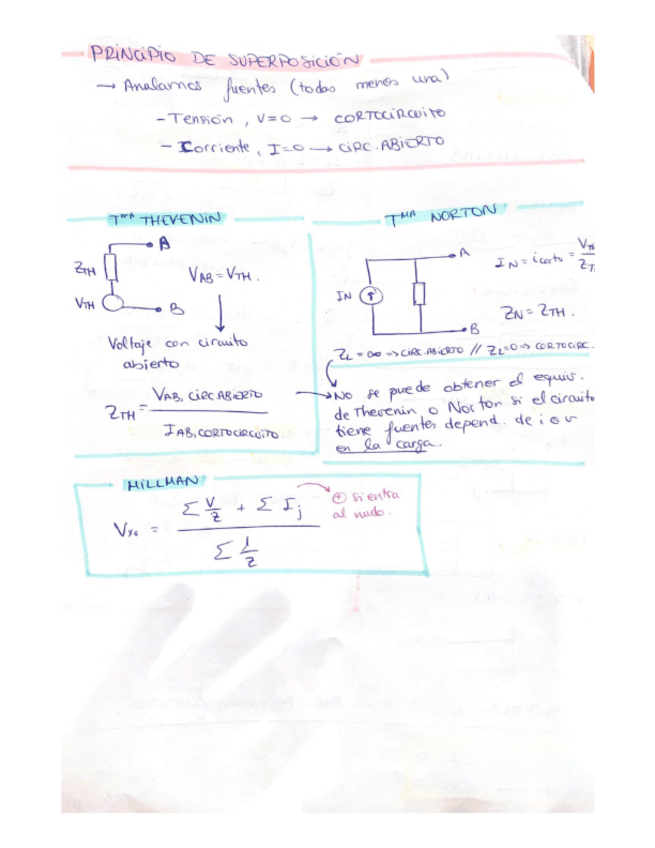 PRINCIPIO DE SUPERPOSICIÓN
→ Anulamos fuentes (todas menos una)
- Tensión, V=0 → CORTOCIRCUITO
- Corriente, I=0 → CIRC. ABIERTO
TMA THEVENIN
A
ZTH
VTH
B
VAB = VTH.
Voltaje con circuito
abierto
ZTH = VAB, CIRC ABIERTO / IAB, CORTOCIRCUITO.
TMA NORTON
A
IN
B
IN = icorto = VTH / ZT
ZN = ZTH.
ZL = ∞ => CIRC. ABIERTO // ZL=0 => CORTOCIRC.
No se puede obtener el equiv.
de Thevenin o Norton si el circuito
tiene fuentes depend. de i o v
en la carga.
MILLMAN
Vxo = (Σ V/Z + Σ Ij) / (Σ 1/Z)
⊕ si entra
al nudo.